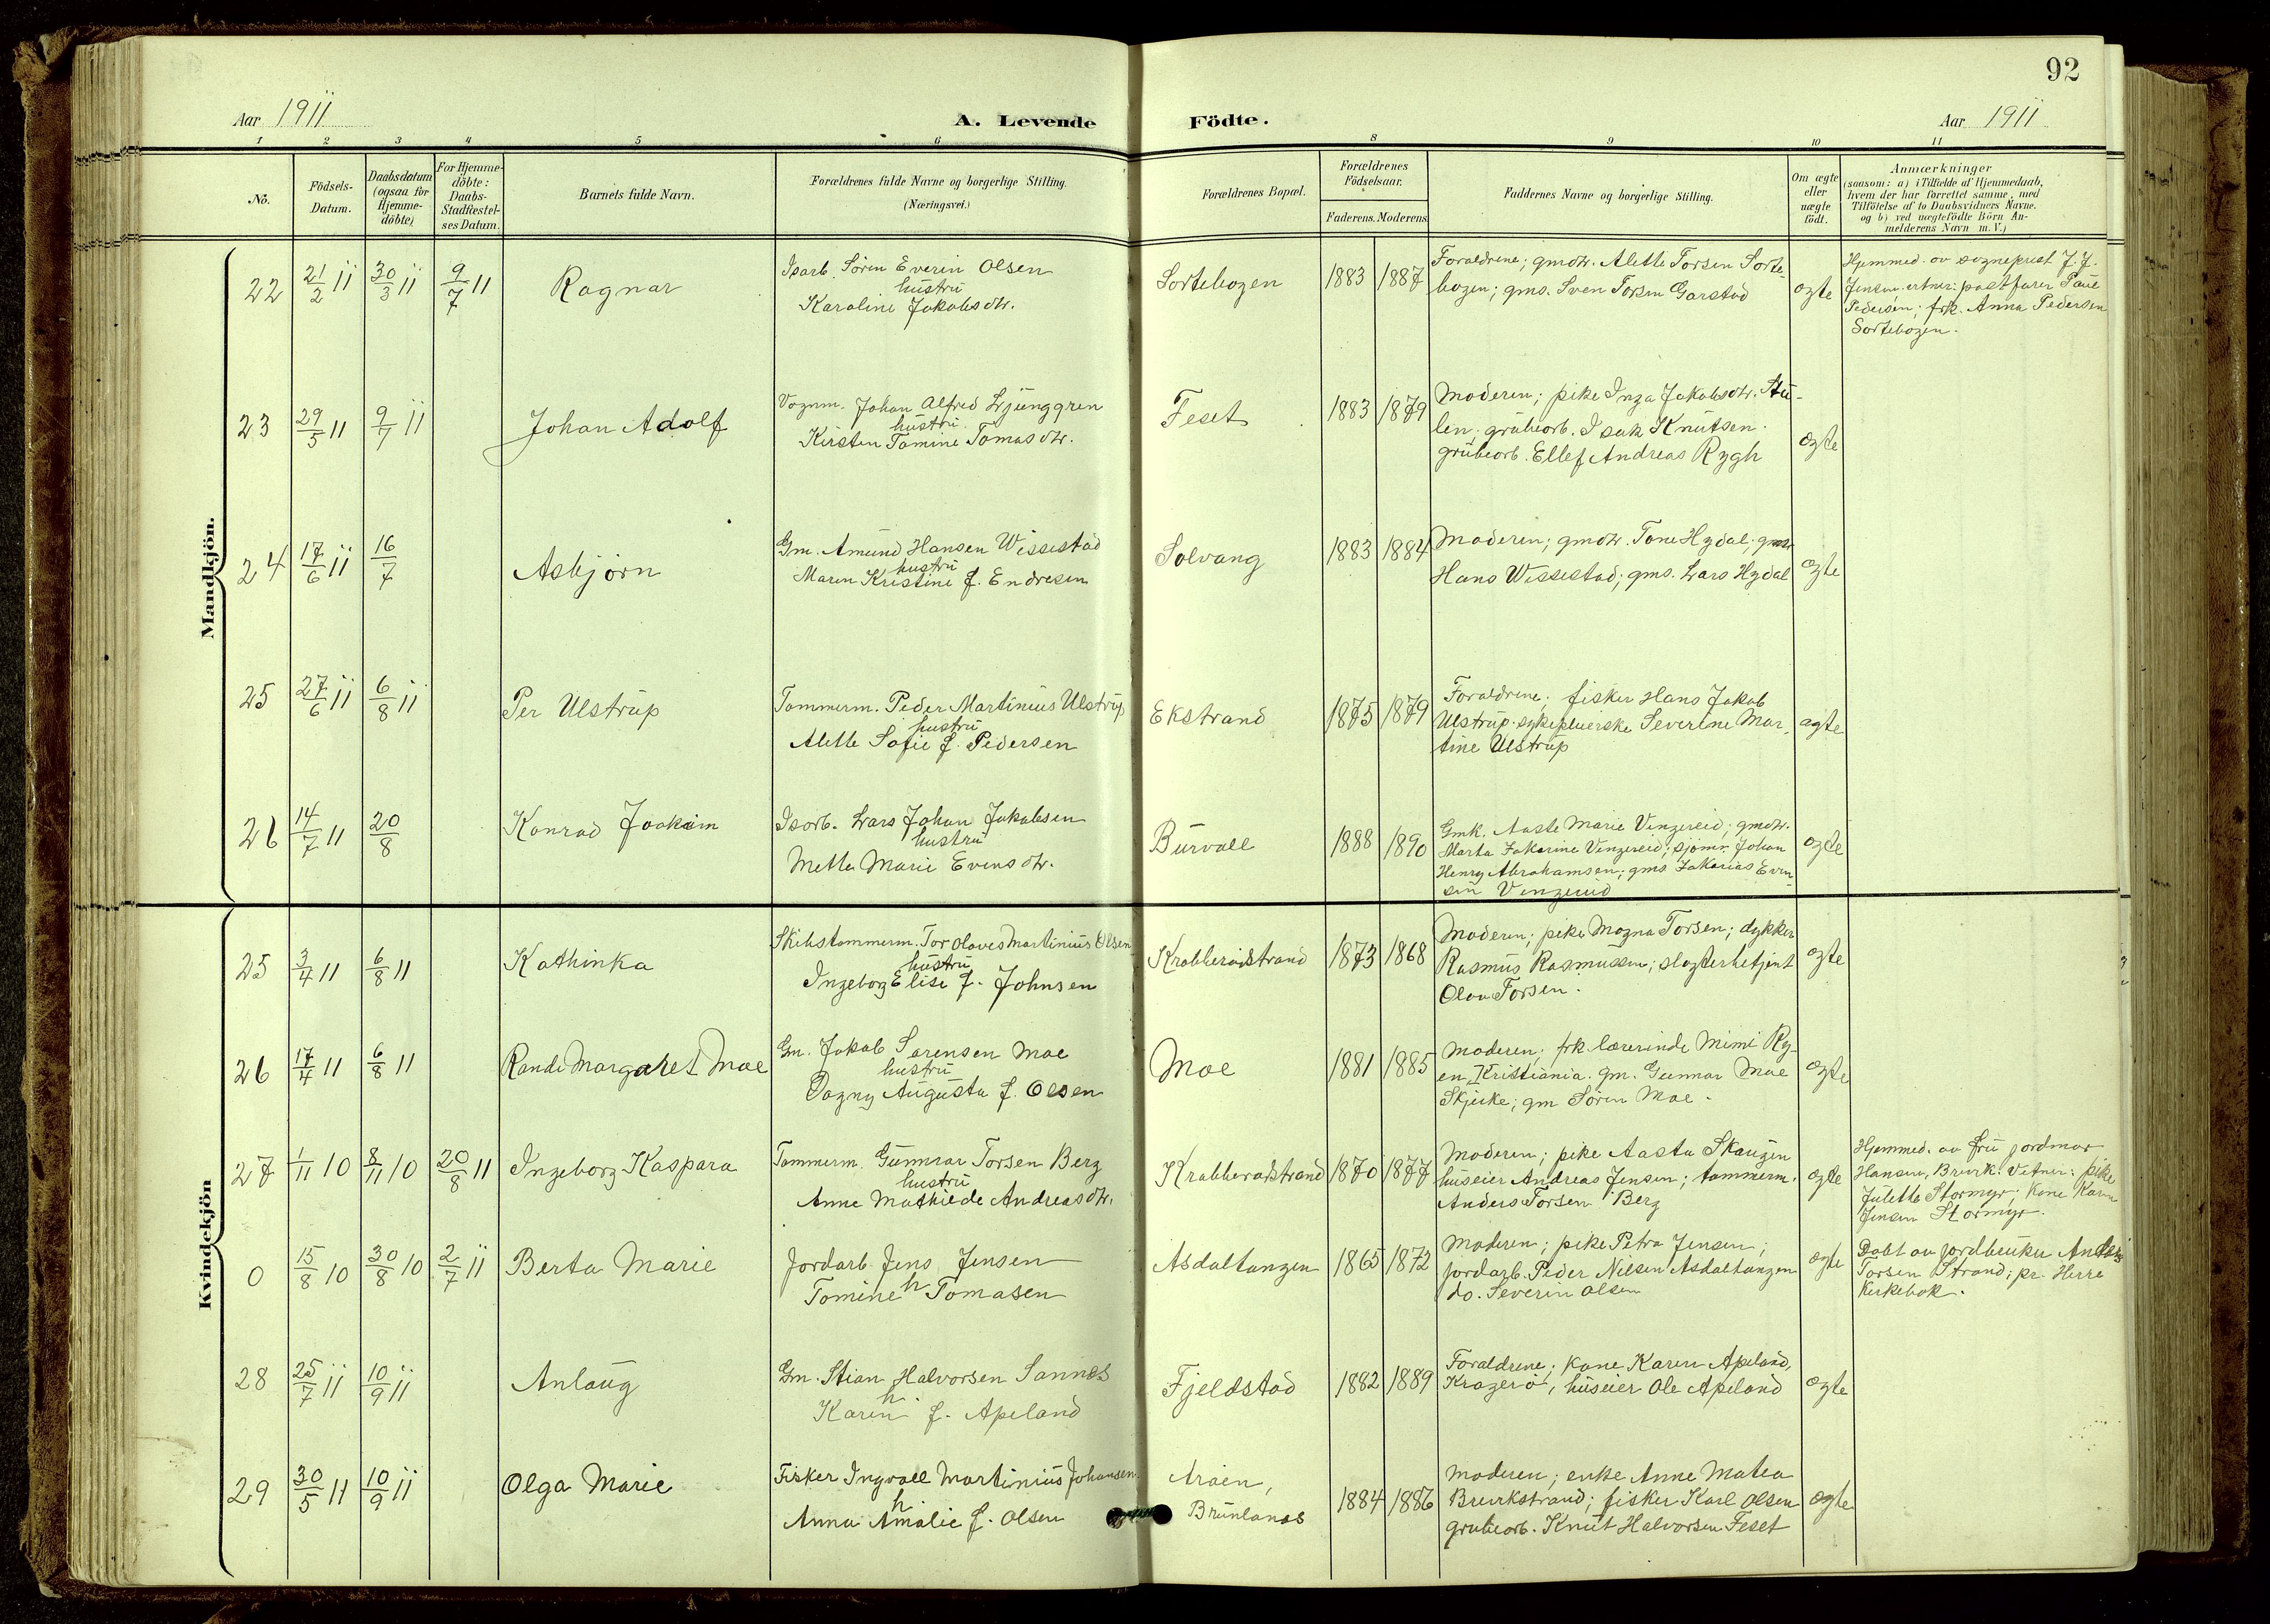 92
Aar 1911
A. Levende Födte.
Aar 1911
1 2 3 4 5 6 8 9 10 11
No.
Födsels-
Datum.
Daabsdatum
(ogsaa for
Hjemme-
döbte)
For Hjemme-
döbte:
Daabs-
Stadfæstel-
ses Datum.
Barnets fulde Navn.
Forældrenes fulde Navne og borgerlige Stilling.
(Næringsvei.)
Forældrenes Bopæl.
Forældrenes
Födselsaar.
Faderens. Moderens.
Faddernes Navne og borgerlige Stilling.
Om ægte
eller
uægte
födt.
Anmærkninger
(saasom: a) i Tilfælde af Hjemmedaab,
hvem der har forrettet samme, med
Tilföielse af to Daabsvidners Navne.
og b) ved uægtefödte Börn An-
melderens Navn m. V.)
Mandkjön.
22 21/2 11 30/3 11 9/7 11 Ragnar
Isarb. Søren Everin Olsen
hustru
Karoline Jakobsdtr.
Sortebogen 1883 1887
Forældrene; gmdtr. Alette Torsen Sorte-
bogen; gms. Sven Torsen Garstad
ægte
Hjemmed. av sogneprest J. J.
Jensen. vitner: postfører Paul
Pedersen; frk. Anna Pedersen
Sortebogen.
23 29/5 11 9/7 11 Johan Adolf
Vognm. Johan Alfred Ljunggren
hustru
Kirsten Tomine Tomasdtr.
Feset 1883 1879
Moderen; pike Inga Jakobsdtr. Stu-
len; grubearb. Isak Knutsen.
grubearb. Ellef Andreas Rygh
ægte
24 17/6 11 16/7 Asbjørn
Gm. Amund Hansen Wissestad
hustru
Maren Kristine f. Endresen
Solvang 1883 1884
Moderen; gmdtr. Tone Hydal; gms.
Hans Wissestad; gms. Lars Hydal
ægte
25 27/6 11 6/8 11 Per Ulstrup
Tømmerm. Peder Martinius Ulstrup
hustru
Alette Sofie f. Pedersen
Ekstrand 1875 1879
Forældrene; fisker Hans Jakob
Ulstrup. sykepleierske Severine Mar-
tine Ulstrup
ægte
26 14/7 11 20/8 Konrad Joakim
Isarb. Lars Johan Jakobsen
hustru
Mette Marie Evensdtr.
Burvall 1888 1890
Gmk. Aaste Marie Vinzereid; gmdtr.
Marta Zakarine Vinzereid; sjøm. Johan
Henry Abrahamsen; gms. Zakarias Even-
sen Vinzereid
ægte
Kvindekjön
25 3/4 11 6/8 11 Kathinka
Skibstømmerm. Tor Olaves Martinius Olsen
hustru
Ingeborg Elise f. Johnsen
Krabberødstrand 1873 1868
Moderen; pike Magna Torsen; dykker
Rasmus Rasmussen; slagterbetjent
Olav Torsen.
ægte
26 17/4 11 6/8 11 Randi Margaret Moe
Gm. Jakob Sørensen Moe
hustru
Dagny Augusta f. Olsen
Moe 1881 1885
Moderen; frk. lærerinde Mimi Ry-
en, Kristiania. gm. Gunnar Moe
Skjeke; gm Søren Moe.
ægte
27 1/11 10 8/11 10 20/8 11 Ingeborg Kaspara
Tømmerm. Gunnar Torsen Berg
hustru
Anne Mathilde Andreasdtr.
Krabberødstrand 1870 1877
Moderen; pike Aasta Skaugen
huseier Andreas Jensen; tømmerm.
Anders Torsen Berg
ægte
Hjemmed. av fru jordmor
Hansen, Brevik. Vitner: pike
Julette Stormyr; kone Karen
Jensen Stormyr.
0 15/8 10 30/8 10 2/7 11 Berta Marie
Jordarb. Jens Jensen
h
Tomine Tomasen
Asdaltangen 1865 1872
Moderen; pike Petra Jensen;
jordarb. Peder Nilsen Asdaltangen
do. Severin Olsen
ægte
Døbt av jordbruker Anders
Torsen Strand; pr. Herre
Kirkebok.
28 25/7 11 10/9 11 Anlaug
Gm. Stian Halvorsen Sannes
h
Karen f. Apeland
Fjeldstad 1882 1889
Forældrene; kone Karen Apeland,
Kragerø, huseier Ole Apeland
ægte
29 30/5 11 10/9 11 Olga Marie
Fisker Ingvall Martinius Johansen.
h
Anna Amalie f. Olsen
Aröen,
Brunlanes
1884 1886
Moderen; enke Anne Matea
Brevikstrand; fisker Karl Olsen
grubearb. Knut Halvorsen Feset
ægte